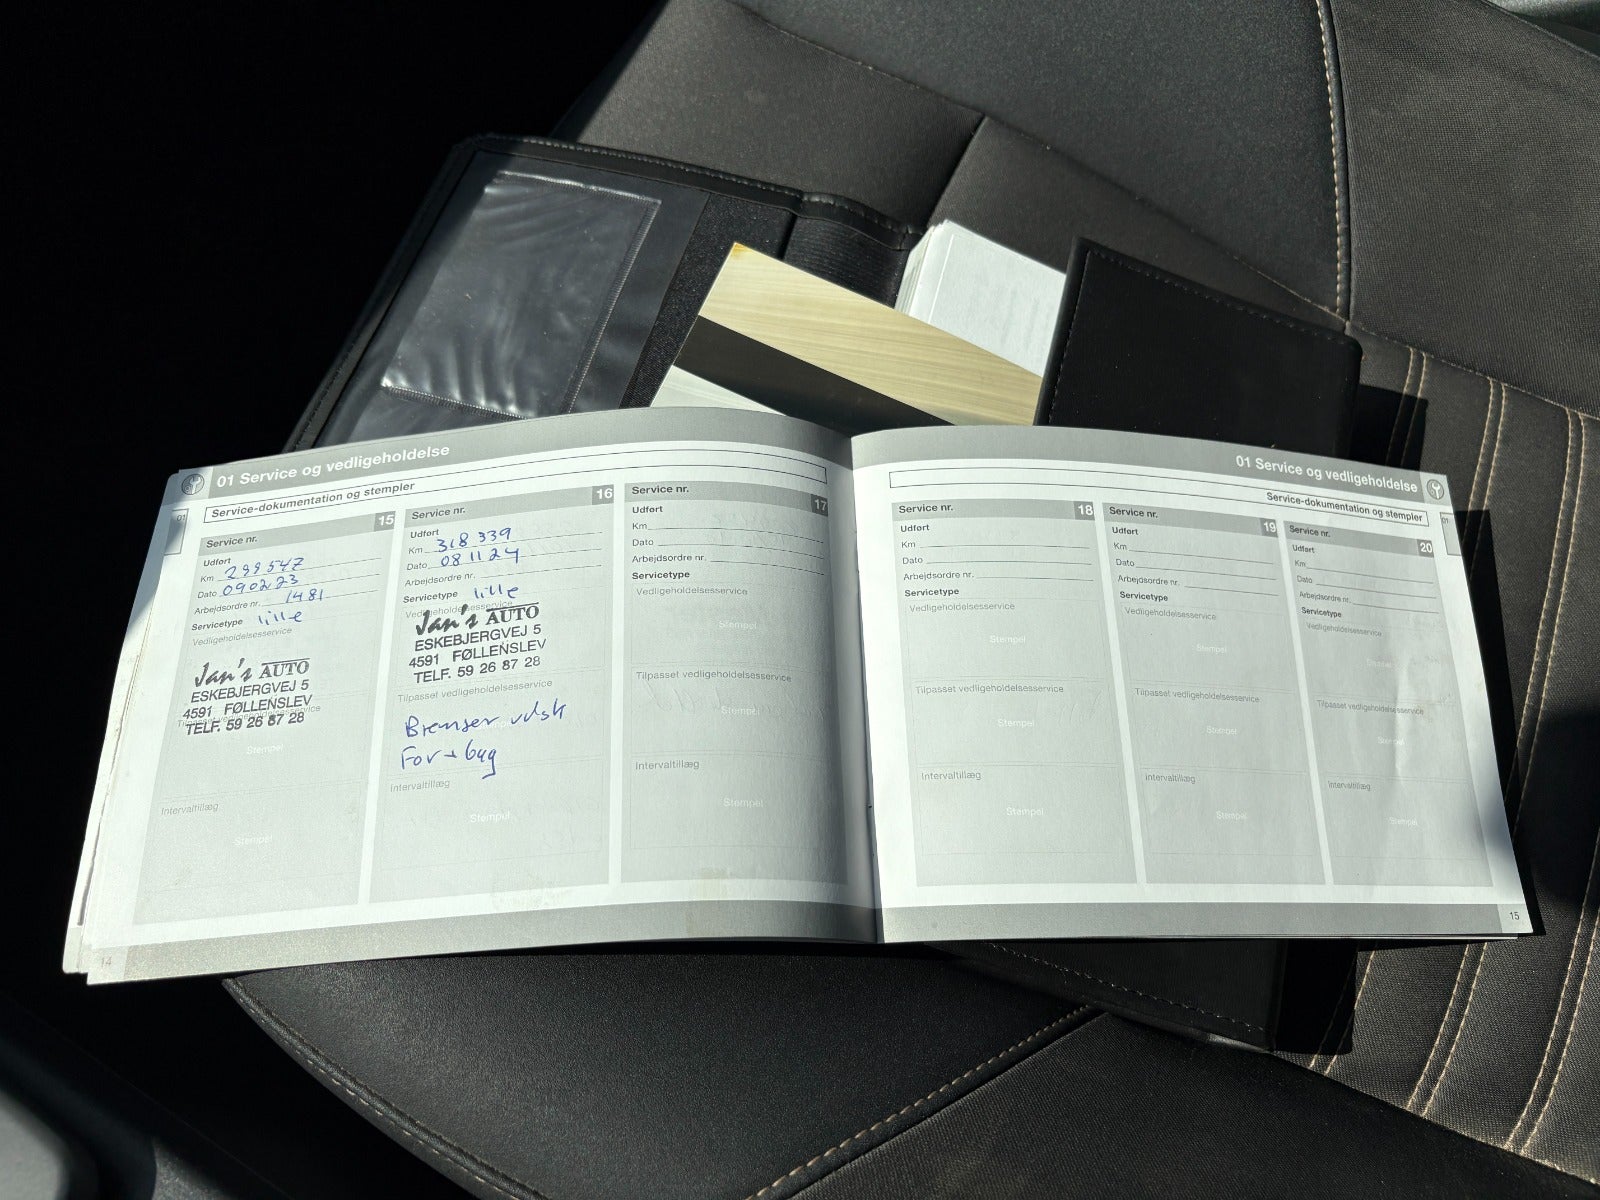 01 Service og vedligeholdelse
Service-dokumentation og stempler
Service nr. 15
Udført
Km 299547
Dato 090223
Arbejdsordre nr. 1481
Servicetype lille
Vedligeholdelsesservice
Jan's AUTO
ESKEBJERGVEJ 5
4591 FØLLENSLEV
TELF. 59 26 87 28
Stempel
Intervaltillæg
Stempel
14
Service nr. 16
Udført
Km 318 339
Dato 08 11 24
Arbejdsordre nr.
Servicetype lille
Vedligeholdelsesservice
Jan's AUTO
ESKEBJERGVEJ 5
4591 FØLLENSLEV
TELF. 59 26 87 28
Tilpasset vedligeholdelsesservice
Bremser udsk
For + bag
Intervaltillæg
Stempel
Service nr. 17
Udført
Km
Dato
Arbejdsordre nr.
Servicetype
Vedligeholdelsesservice
Stempel
Tilpasset vedligeholdelsesservice
Stempel
Intervaltillæg
Stempel
01 Service og vedligeholdelse
Service-dokumentation og stempler
Service nr. 18
Udført
Km
Dato
Arbejdsordre nr.
Servicetype
Vedligeholdelsesservice
Stempel
Tilpasset vedligeholdelsesservice
Stempel
Intervaltillæg
Stempel
Service nr. 19
Udført
Km
Dato
Arbejdsordre nr.
Servicetype
Vedligeholdelsesservice
Stempel
Tilpasset vedligeholdelsesservice
Stempel
Intervaltillæg
Stempel
Service nr. 20
Udført
Km
Dato
Arbejdsordre nr.
Servicetype
Vedligeholdelsesservice
Stempel
Tilpasset vedligeholdelsesservice
Stempel
Intervaltillæg
Stempel
15